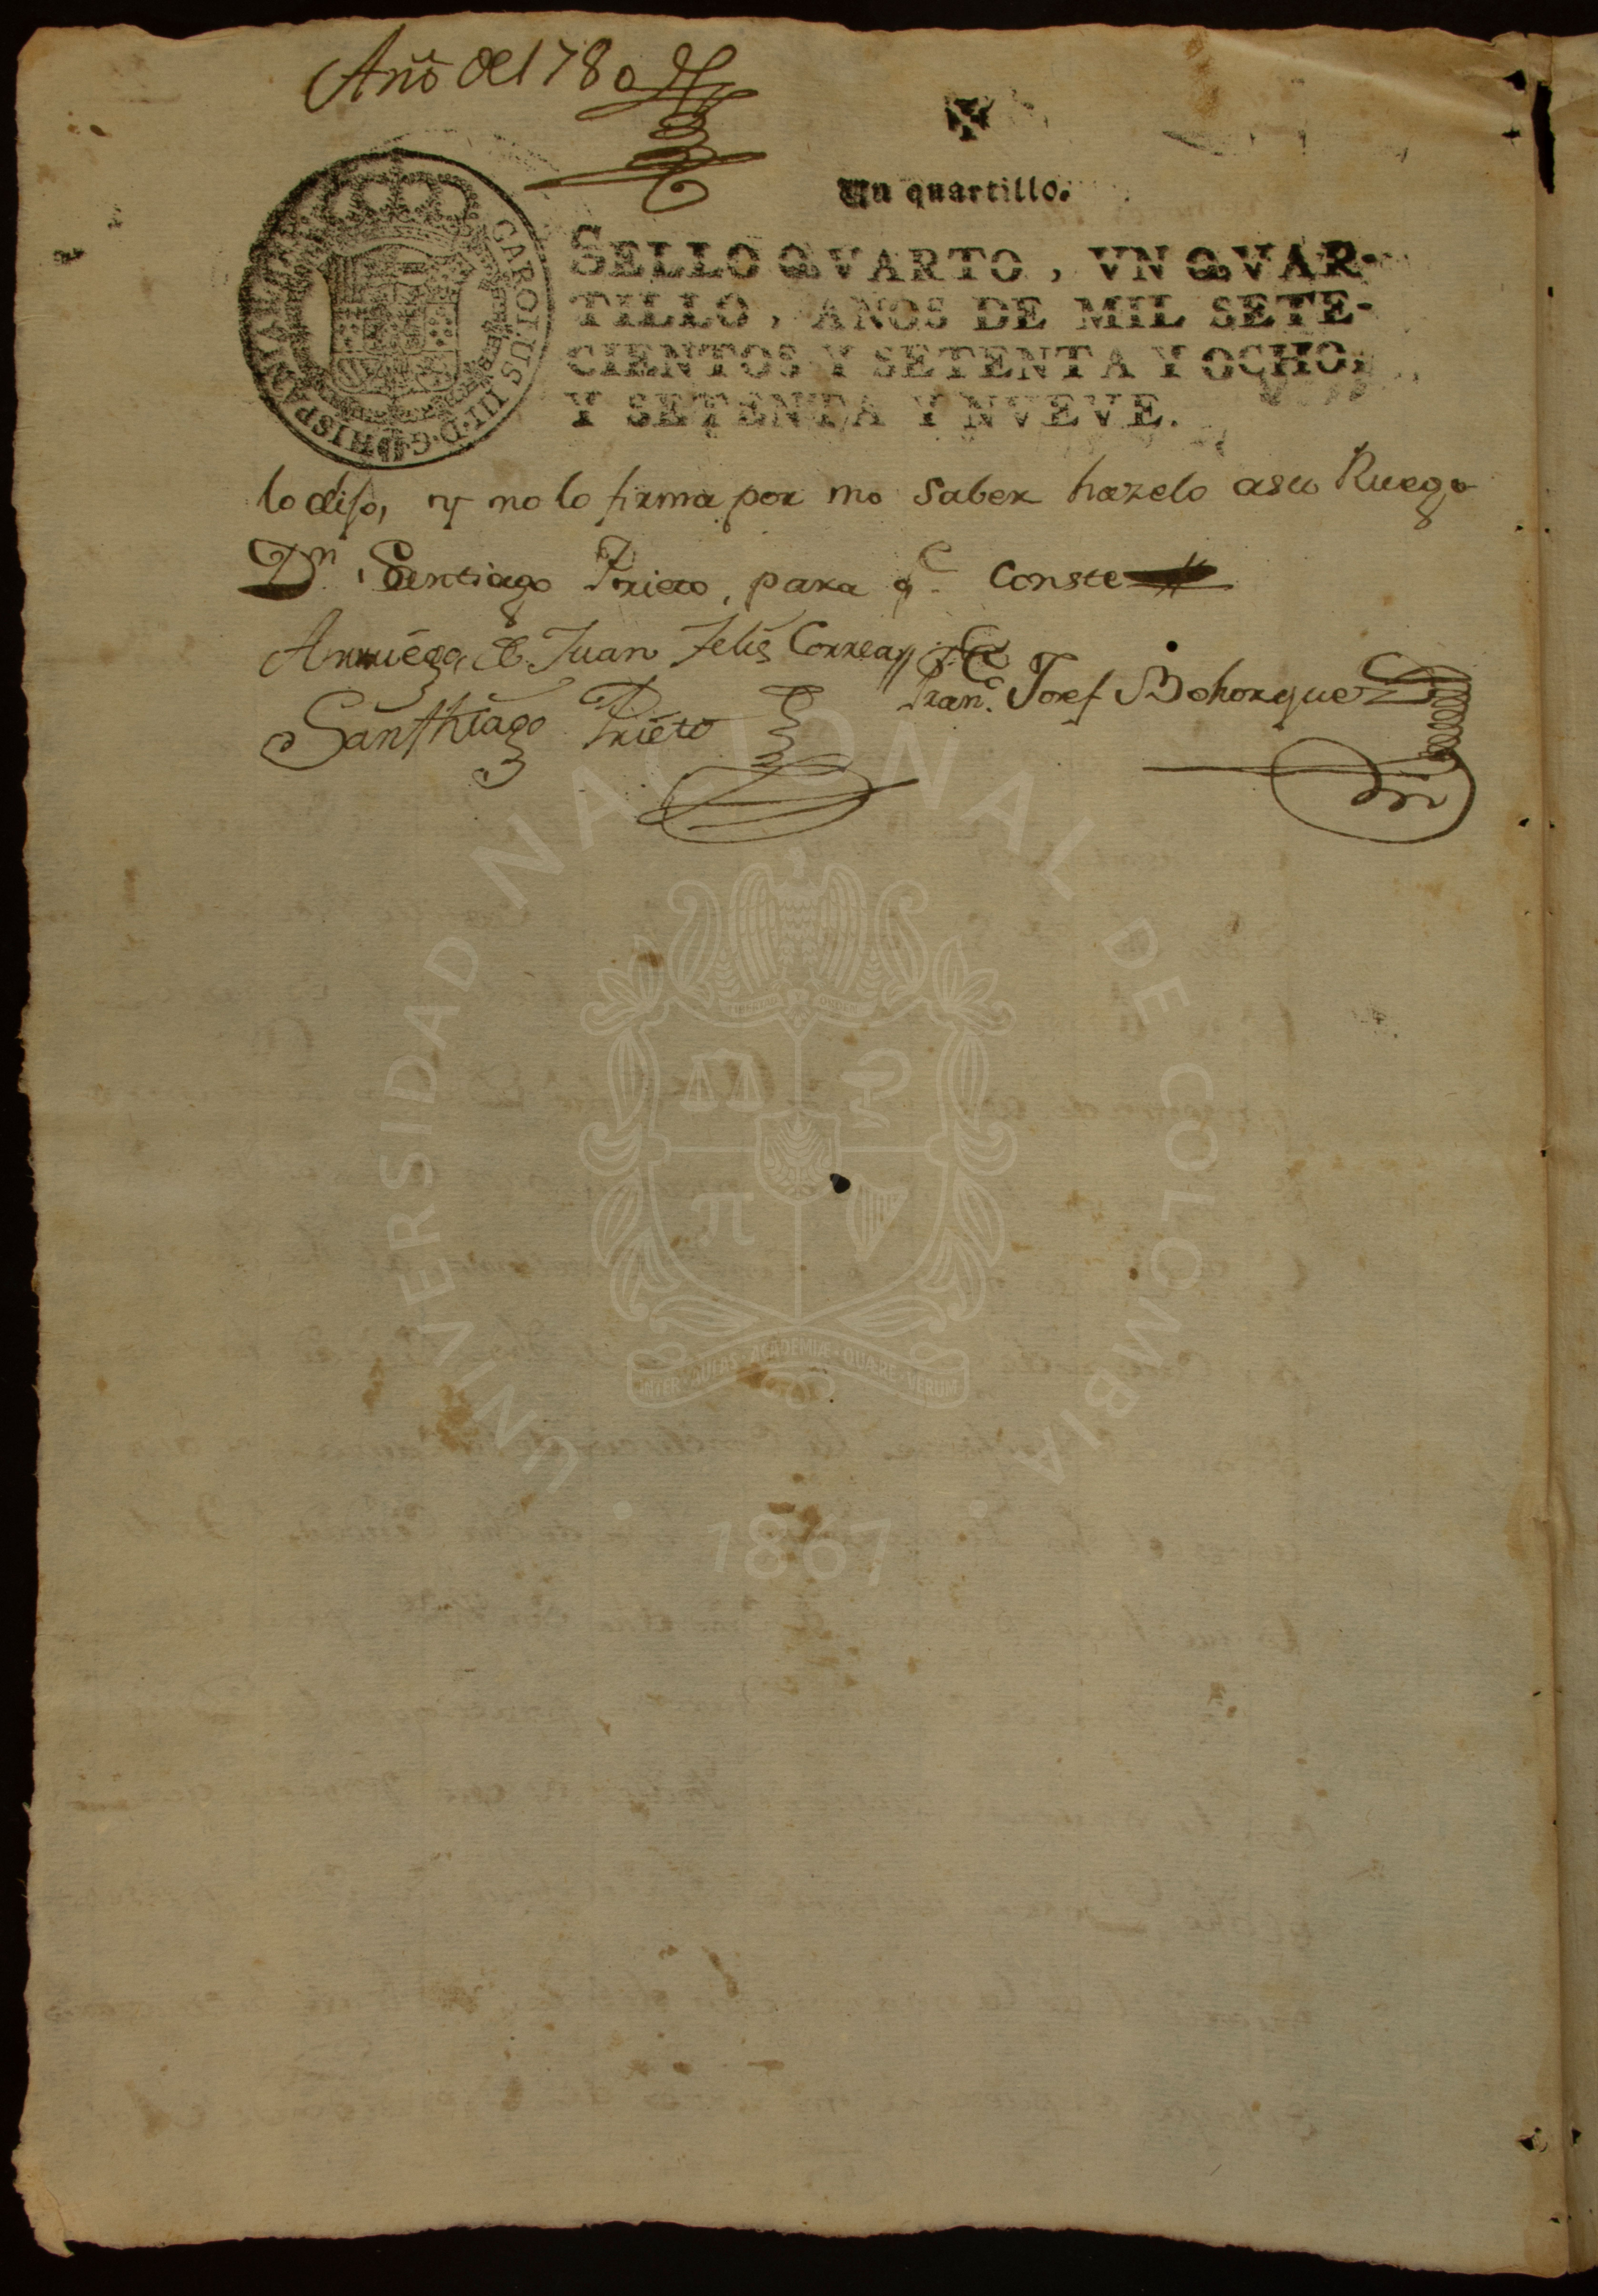 Año de 1780
Un quartillo.
SELLO QVARTO, VN QVAR-
TILLO, AÑOS DE MIL SETE-
CIENTOS Y SETENTA Y OCHO,
Y SETENTA Y NVEVE.
CAROLUS III·D·G·HISPANIAR
lo dijo, y no lo firma por no saber hazelo asu Ruego
Dn. Santiago Prieto, para qe. Conste
Arruego de Juan Felis Correa
Santhiago Prieto
Franco. Josef Bohorquez
UNIVERSIDAD NACIONAL DE COLOMBIA
LIBERTAD ORDEN
INTER·AULAS·ACADEMIÆ·QUÆRE·VERUM
1867